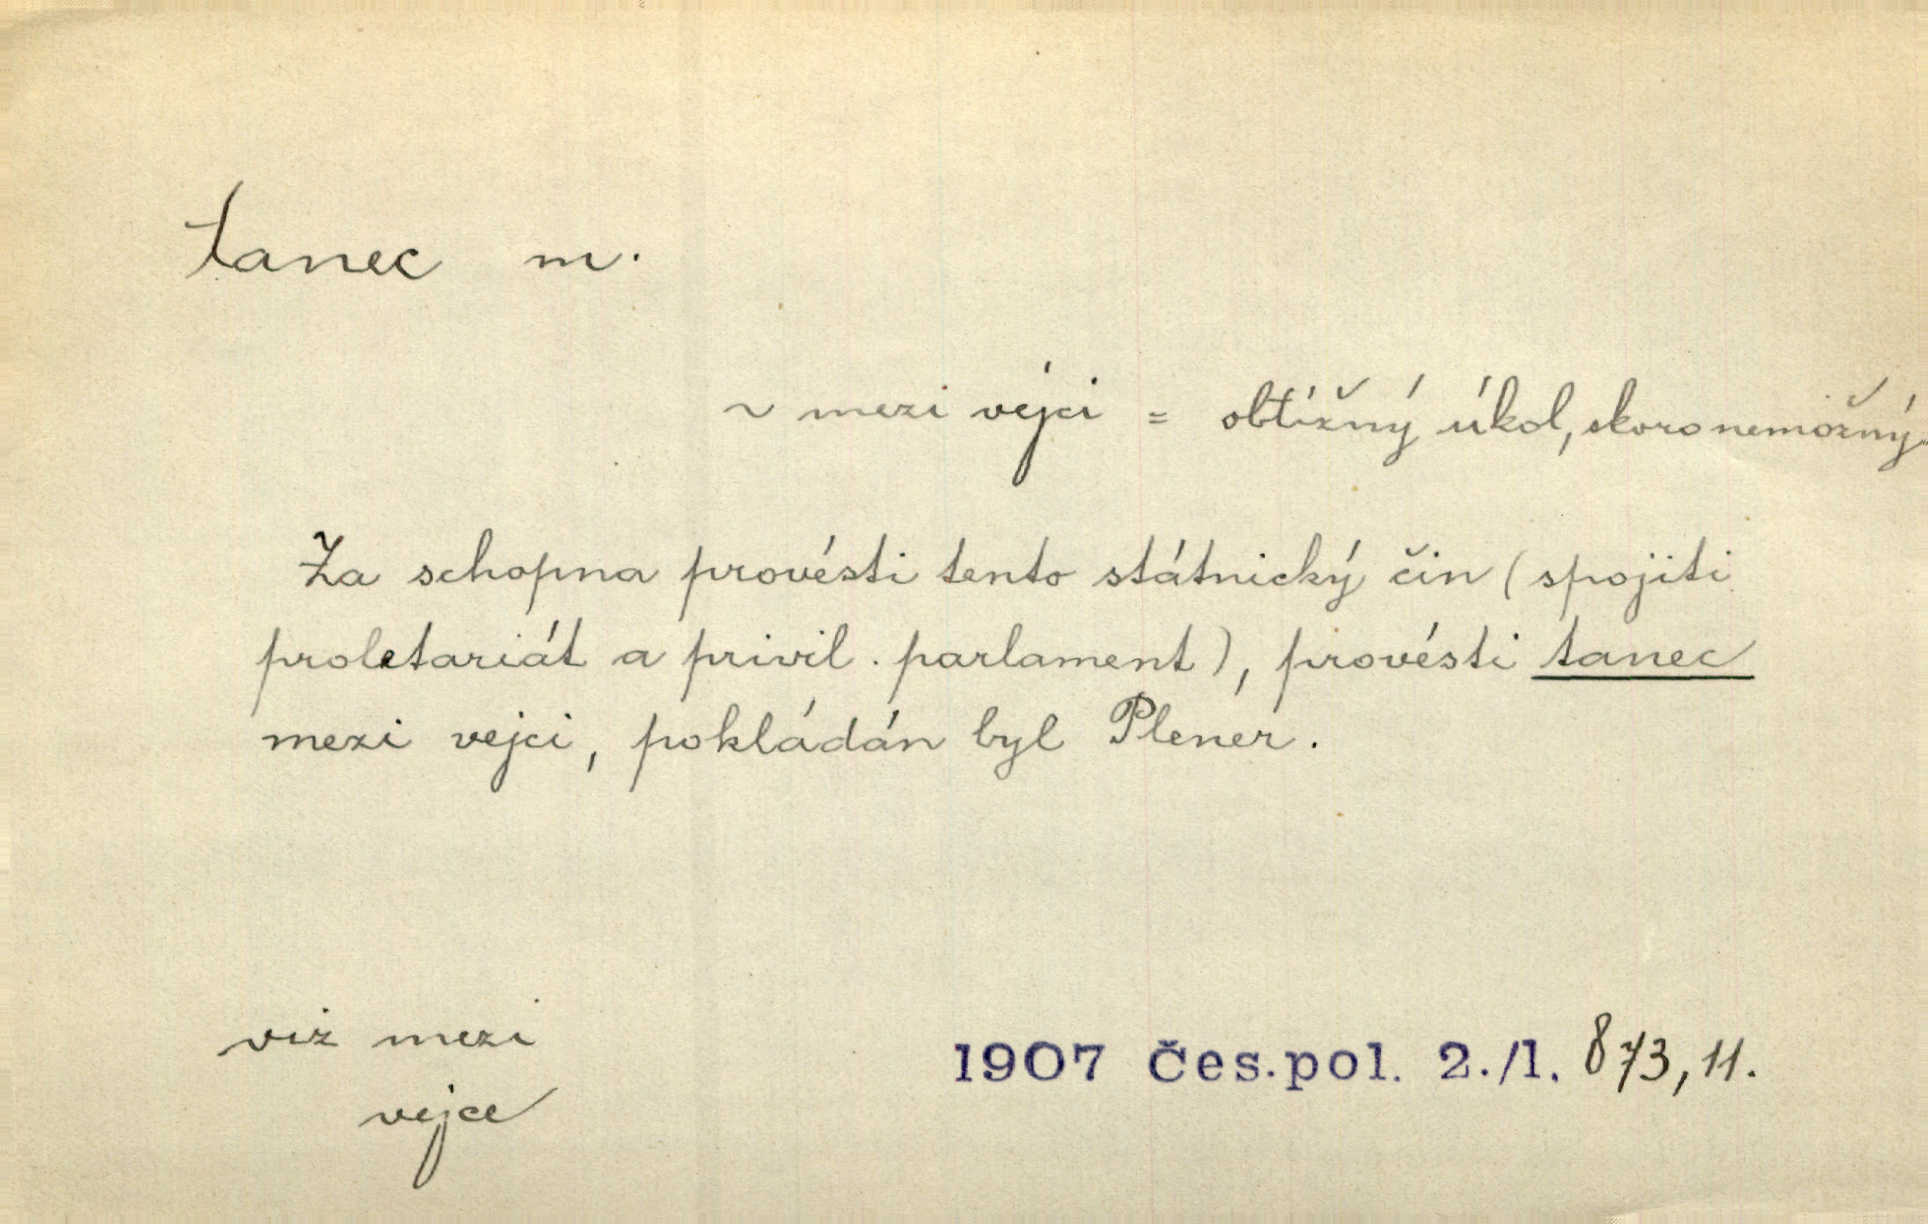 tanec m.
~ mezi vejci = obtížný úkol, skoro nemožný
Za schopna provésti tento státnický čin (spojiti
proletariát a privil. parlament), provésti tanec
mezi vejci, pokládán byl Plener.
viz mezi
vejce
1907 Čes.pol. 2./1. 873,11.